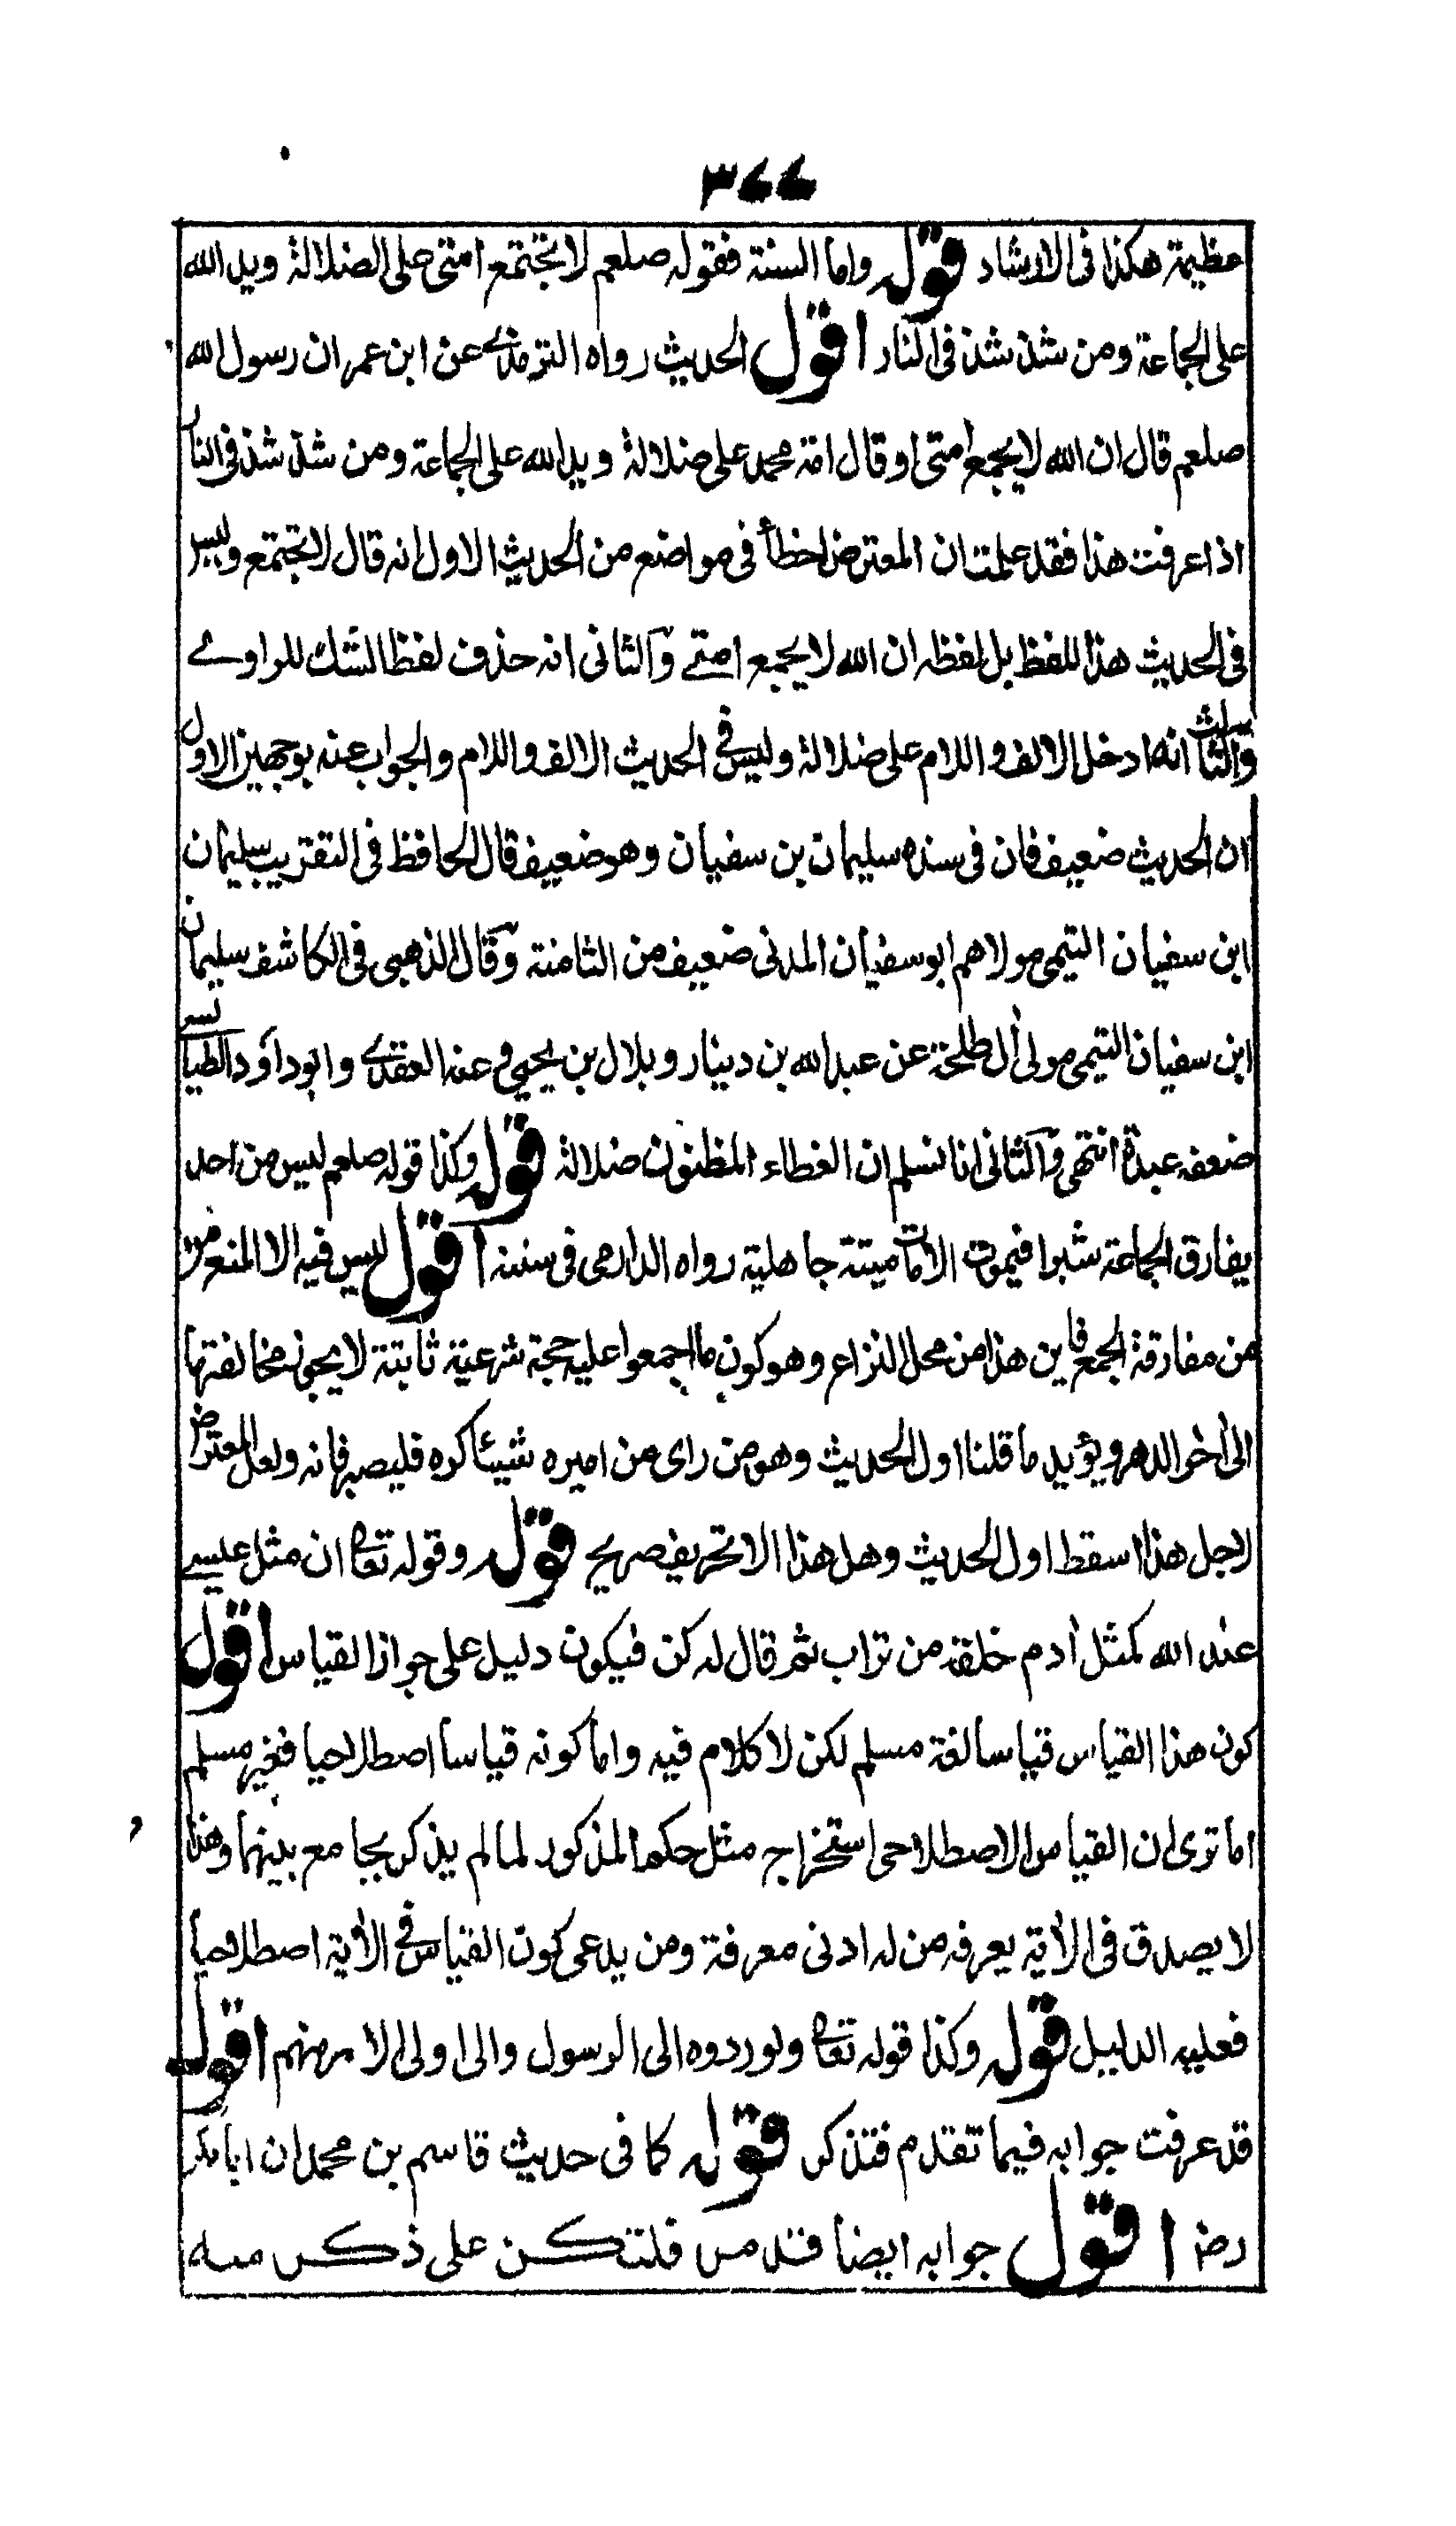 ٣٧٧
عظيمة هكذا فى الارشاد قوله واما السنة فقوله صلعم لا تجتمع امتى على الضلالة ويد الله
على الجماعة ومن شذ شذ فى النار اقول الحديث رواه الترمذے عن ابن عمر ان رسول الله
صلعم قال ان الله لا يجمع امتى او قال امة محمد على ضلالة ويد الله على الجماعة ومن شذ شذ فى النار
اذا عرفت هذا فقد علمت ان المعترض اخطأ فى مواضع من الحديث الاول انه قال لا تجتمع وليس
فى الحديث هذا اللفظ بل لفظه ان الله لا يجمع امتے والثانى انه حذف لفظ الشك للراوے
والثالث انه ادخل الالف واللام على ضلالة وليس فے الحديث الالف واللام والجواب عنه بوجهين الاول
ان الحديث ضعيف فان فى سنده سليمان بن سفيان وهو ضعيف قال الحافظ فى التقريب سليمان
ابن سفيان التيمى مولاهم ابو سفيان المدنى ضعيف من الثامنة وقال الذهبى فى الكاشف سليمان
ابن سفيان التيمى مولى أل طلحة عن عبد الله بن دينار وبلال بن يحيى وعنه العقدے وابو داؤد الطيالسے
ضعفه عبدة انتهى والثانى انا نسلم ان الغطاء المظنون ضلالة قوله وكذا قوله صلعم ليس من احد
يفارق الجماعة شبرا فيموت الا مات ميتة جاهلية رواه الدارمى فى سننه اقول ليس فيه الا المنع من
من مفارقة الجمع فاين هذا من محل النزاع وهو كون ما اجمعوا عليه حجة شرعية ثابتة لا يجوز مخالفتها
الى أخر الدهر ويؤيد ما قلنا اول الحديث وهو من راى من اميره شيئا كره فليصبر فانه ولعل المعترض
لاجل هذا اسقط اول الحديث وهل هذا الا تحريف صريح قوله وقوله تعالى ان مثل عيسے
عند الله كمثل أدم خلقه من تراب ثم قال له كن فيكون دليل على جواز القياس اقول
كون هذا القياس قياسا لغة مسلم لكن لا كلام فيه واما كونه قياسا اصطلاحيا فغير مسلم
اما ترى ان القياس الاصطلاحى استخراج مثل حكم المذكور لما لم يذكر بجامع بينهما وهذا
لا يصدق فى الأية يعرفه من له ادنى معرفة ومن يدعى كون القياس فے الأية اصطلاحيا
فعليه الدليل قوله وكذا قوله تعالى ولو ردوه الى الرسول والى اولى الامر منهم اقول
قد عرفت جوابه فيما تقدم فتذكر قوله كما فى حديث قاسم بن محمد ان ابا بكر
رضـ اقول جوابه ايضا قد مر فلتكن على ذكر منه